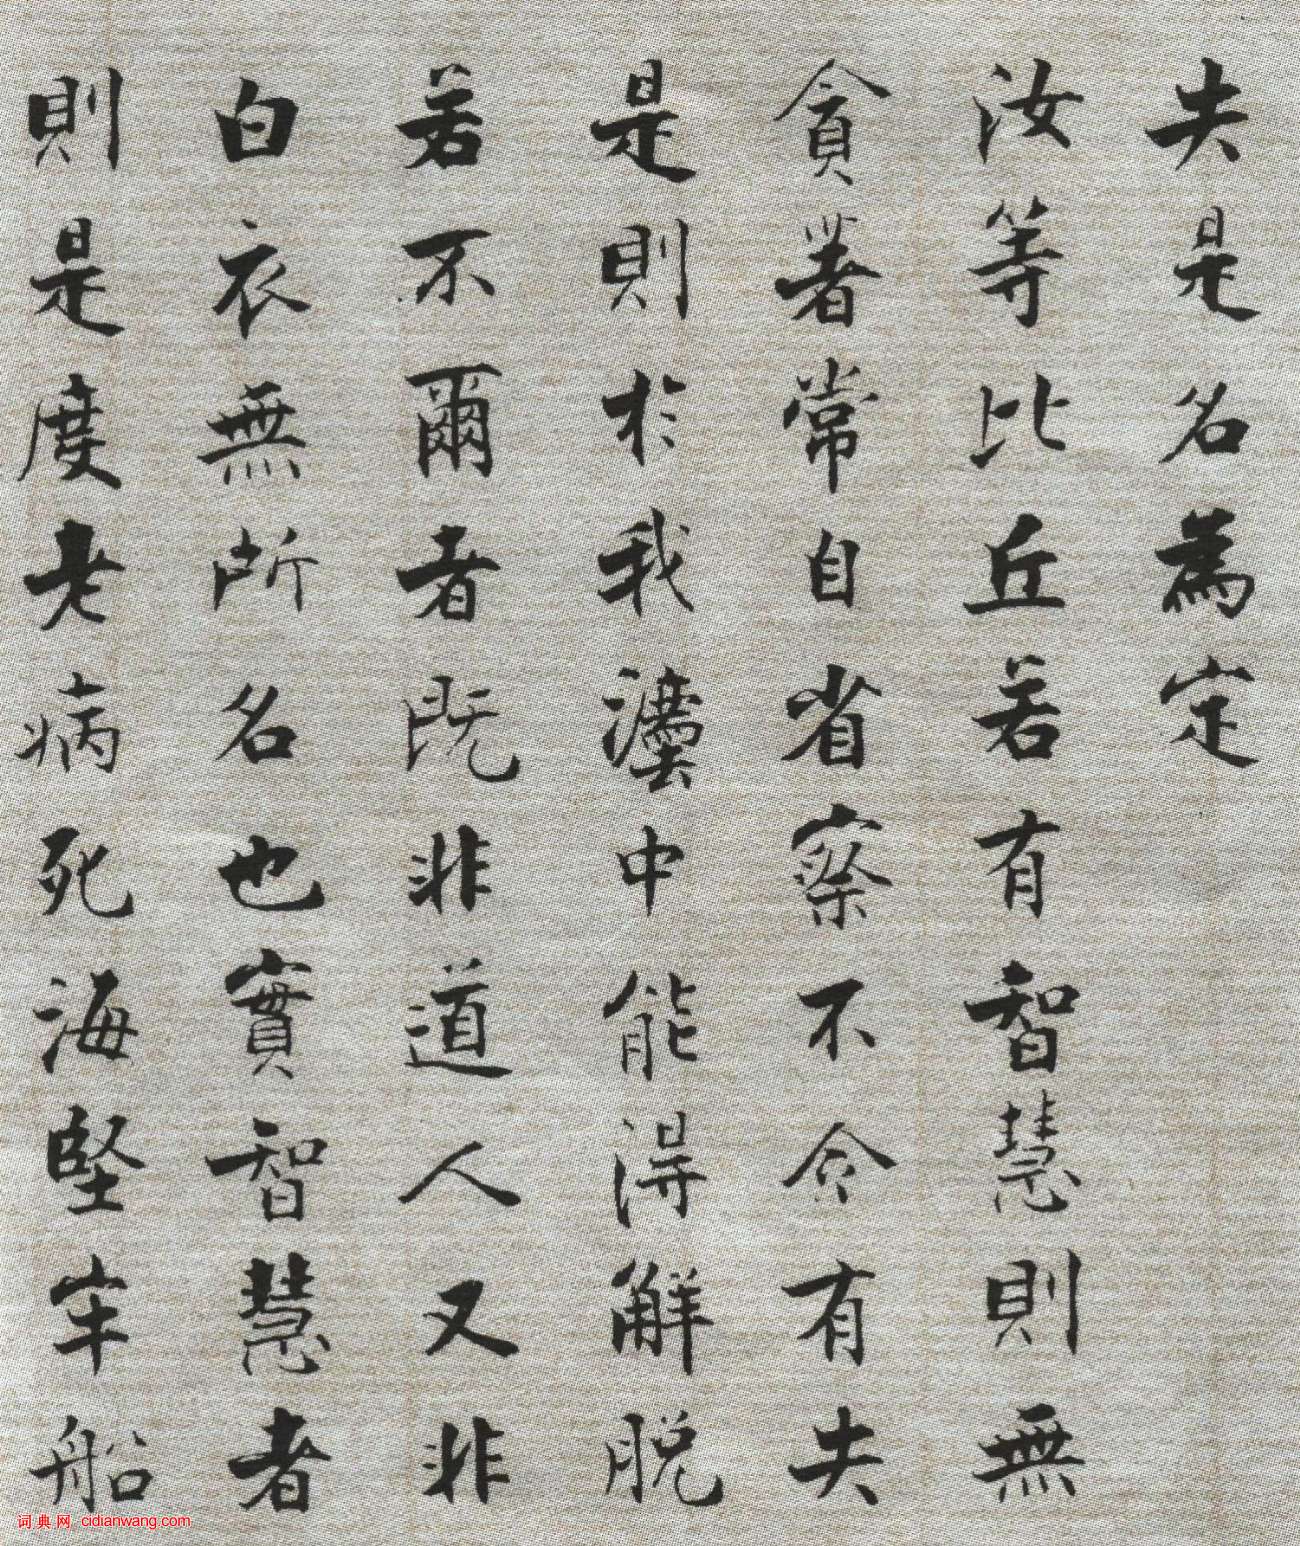 失是名為定
汝等比丘若有智慧則無
貪著常自省察不令有失
是則於我灋中能得解脫
若不爾者既非道人又非
白衣無所名也實智慧者
則是度老病死海堅牢船
词典网 cidianwang.com